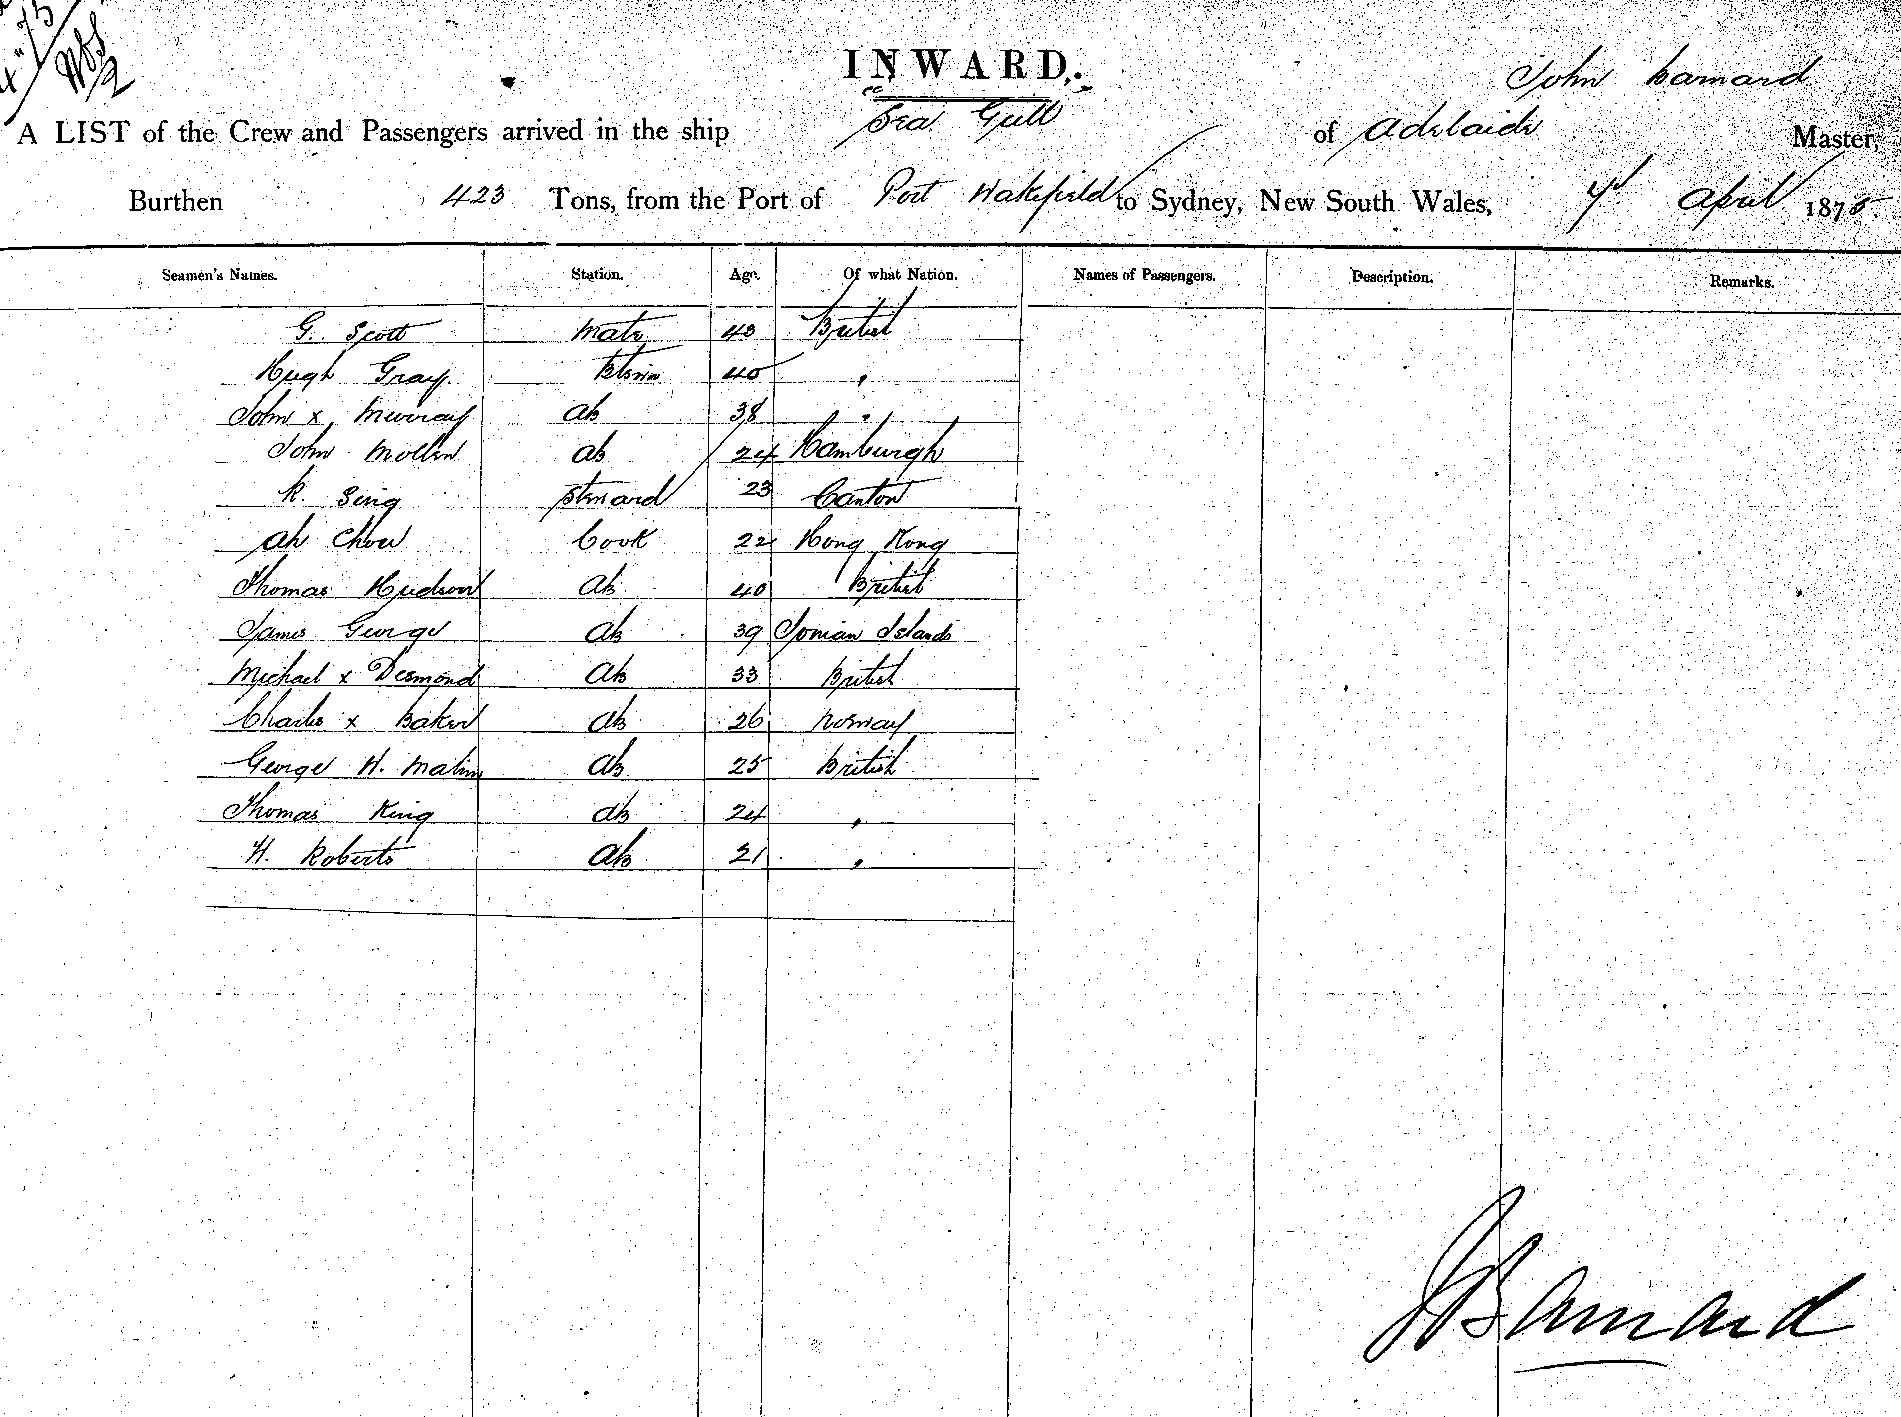 INWARD.
"Sea Gull"
John Barnard
A LIST of the Crew and Passengers arrived in the ship of Adelaide Master,
Burthen 423 Tons, from the Port of Port Wakefield to Sydney, New South Wales, April 1875.
Seamen's Names. Station. Age. Of what Nation. Names of Passengers. Description. Remarks.
G. Scott Mate 43 British
Hugh Gray 40 "
John x Murray ab 38 "
John Mollin ab 24 Hamburgh
K. Sing Steward 23 Canton
Ah Chow Cook 22 Hong Kong
Thomas Hudson ab 40 British
James George ab 39 Ionian Islands
Michael x Desmond ab 33 British
Charles x Baker ab 26 Norway
George H. Malin ab 25 British
Thomas King ab 24 "
H. Roberts ab 21 "
J Barnard